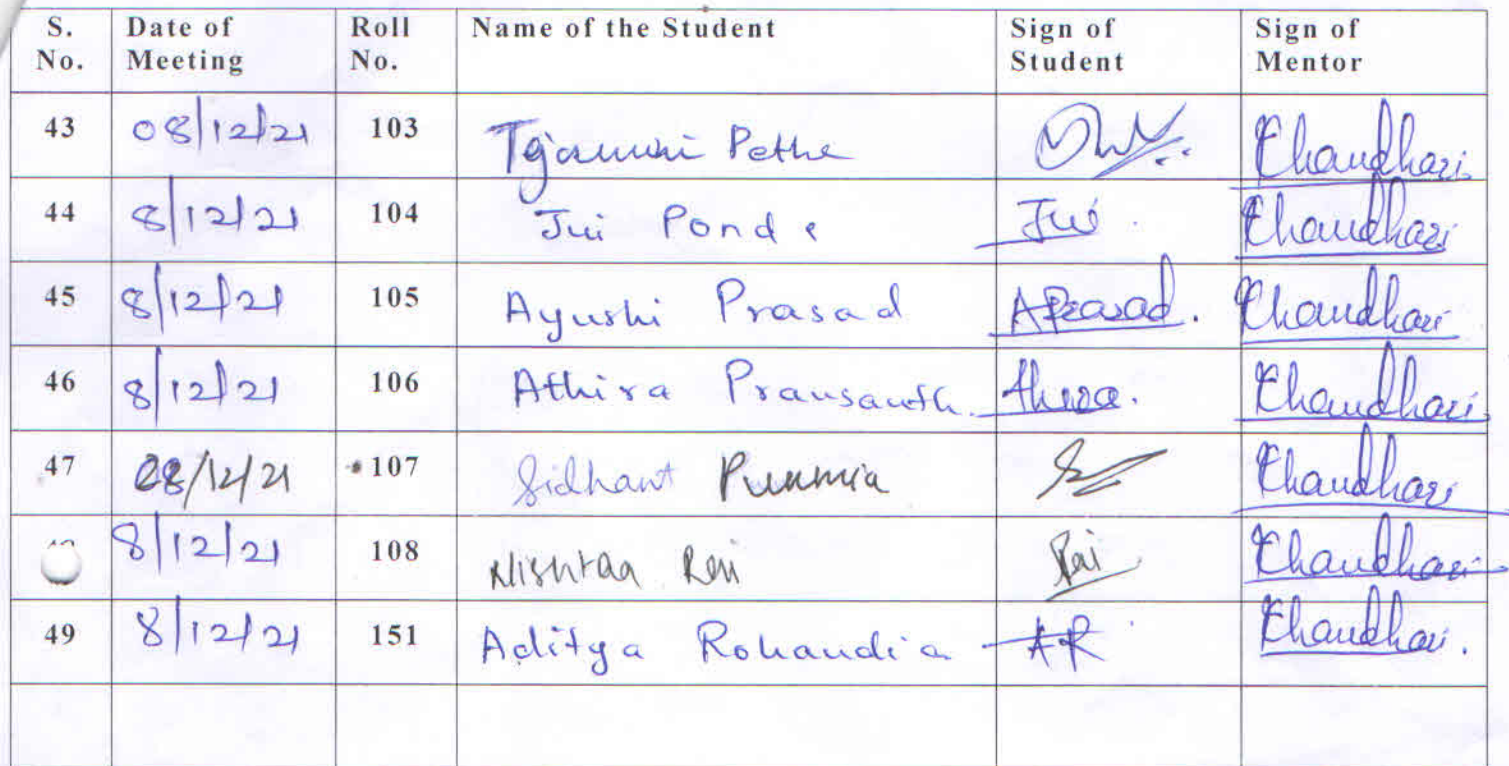 S. No. Date of Meeting Roll No. Name of the Student Sign of Student Sign of Mentor
43 08/12/21 103 Pethe Chaudhari
44 8/12/21 104 Jui Ponde Jui. Chaudhari
45 8/12/21 105 Ayushi Prasad APrasad. Chaudhari
46 8/12/21 106 Athira Prausauth. Chaudhari
47 08/12/21 107 Sidhant Punmia Chaudhari
8/12/21 108 Nishtaa Rai Rai Chaudhari
49 8/12/21 151 Aditya Rohandia AR Chaudhari.